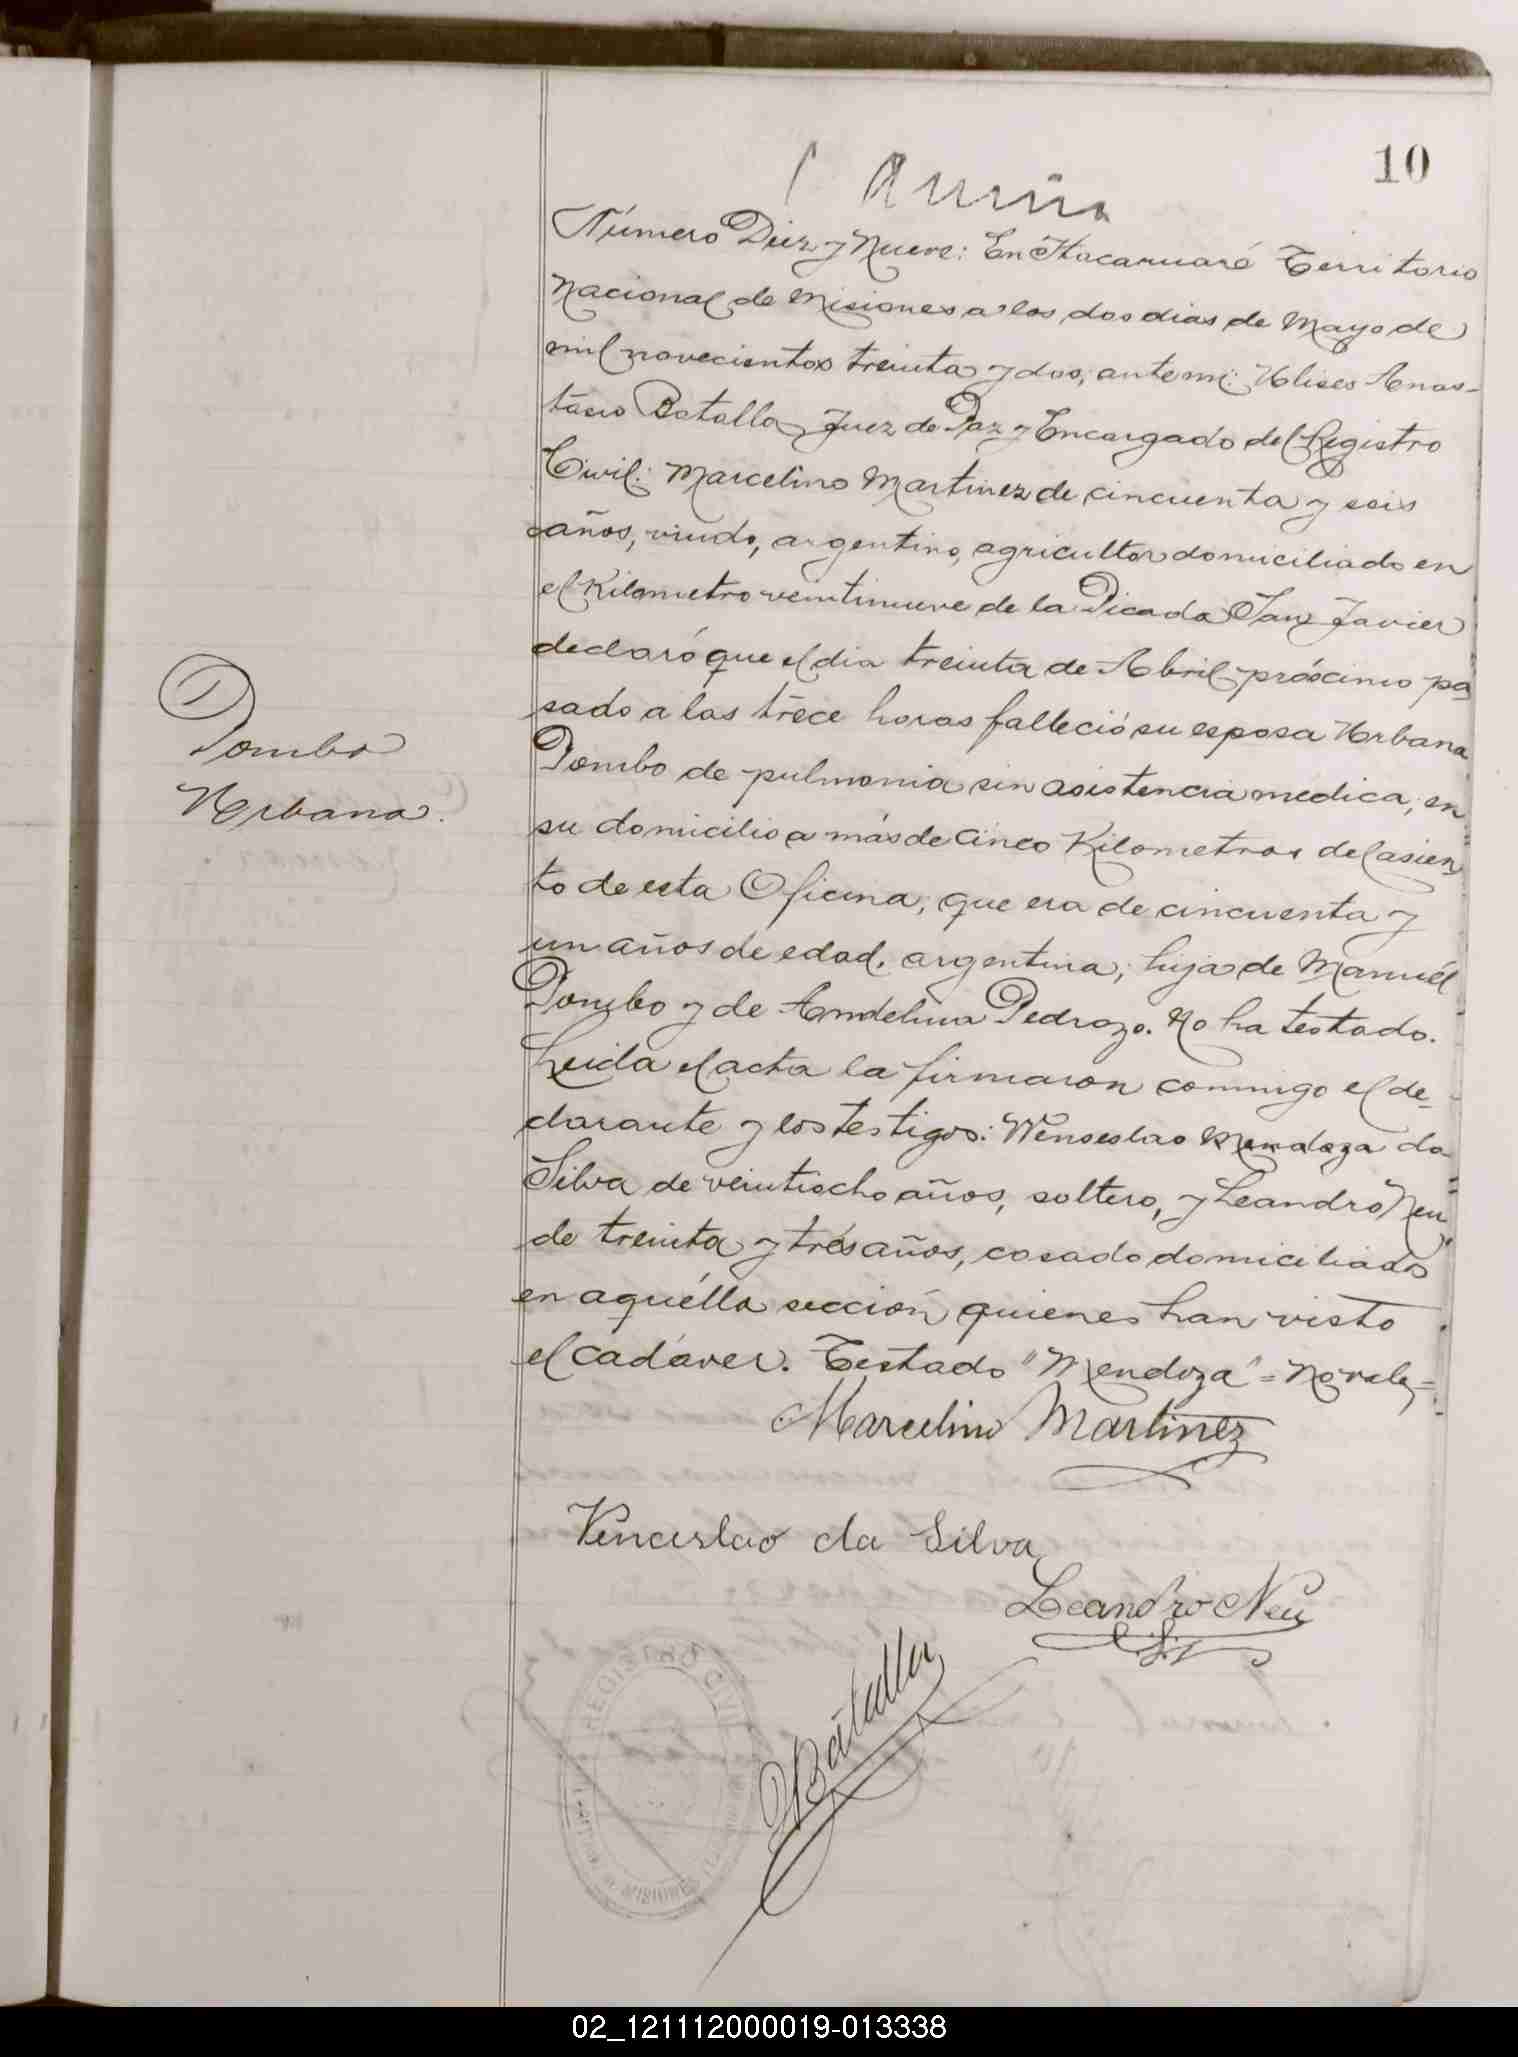 10
Número Diez y Nueve: En Itacaruaré Territorio
Nacional de Misiones a los dos dias de Mayo de
mil novecientos treinta y dos, ante mi: Ulises Anas-
tacio Batalla Juez de Paz y Encargado del Registro
Civil: Marcelino Martinez de cincuenta y seis
años, viudo, argentino, agricultor domiciliado en
el Kilometro veintinueve de la Picada San Javier
declaró que el dia treinta de Abril próximo pa
sado a las trece horas falleció su esposa Urbana
Pombo de pulmonia sin asistencia medica, en
su domicilio a más de cinco Kilometros del asien
to de esta Oficina, que era de cincuenta y
un años de edad, argentina, hija de Manuél
Pombo y de Pedrozo. No ha testado.
Leida el acta la firmaron conmigo el de-
clarante y los testigos: Wenseslao Mendoza da
Silva de veintiocho años, soltero, y Leandro Neu
de treinta y trés años, casado domiciliados
en aquélla sección quienes han visto
el cadáver. Testado "Mendoza" = No vale =
1
Pombo
Urbana.
Marcelino Martinez
Venceslao da Silva
Leandro Neu
UBatalla
REGISTRO CIVIL
MISIONES
02_121112000019-013338